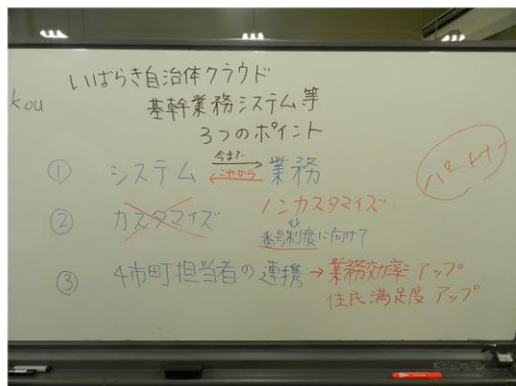 いばらき自治体クラウド
kou
基幹業務システム等
3つのポイント
① システム 今まで→ ←これから 業務
パートナー
② カスタマイズ ノンカスタマイズ
番号制度に向けて
③ 4市町担当者の連携→業務効率アップ
住民満足度アップ